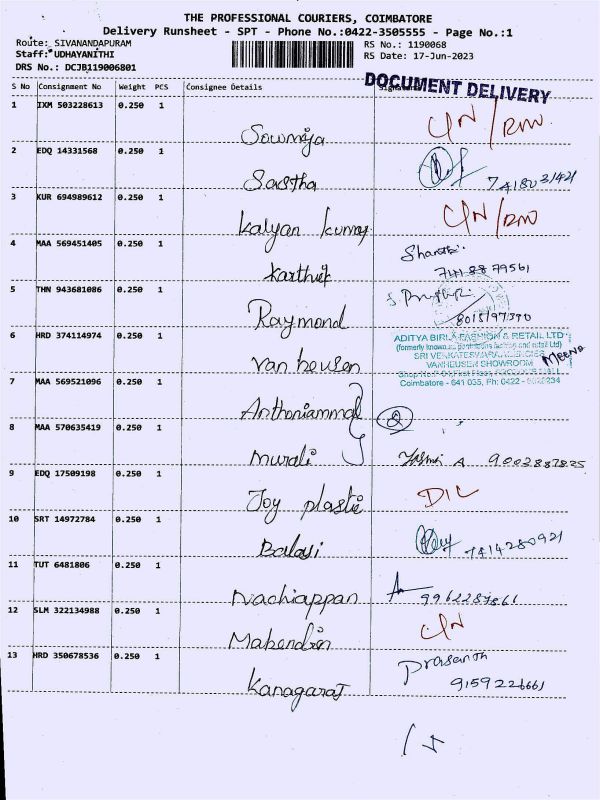 THE PROFESSIONAL COURIERS, COIMBATORE
Delivery Runsheet - SPT - Phone No.:0422-3505555 - Page No.:1
Route: SIVANANDAPURAM
RS No.: 1190068
Staff: UDHAYANITHI
RS Date: 17-Jun-2023
DRS No.: DCJB119006801
DOCUMENT DELIVERY
S No Consignment No Weight PCS Consignee Details
1 IXM 503228613 0.250 1
Sowmiya
2 EDQ 14331568 0.250 1
Sastha
3 KUR 694989612 0.250 1
Kalyan kumar
4 MAA 569451405 0.250 1
Karthik
7418879561
5 THN 943681086 0.250 1
Raymond
6 HRD 374114974 0.250 1
ADITYA BIRLA FASHION & RETAIL LTD
(formerly known as pantaloons fashion and retail Ltd)
SRI VENKATESWARA AGENCIES
VANHEUSEN SHOWROOM
Meena
Coimbatore - 641 035, Ph: 0422 -
Van heusen
7 MAA 569521096 0.250 1
Anthoniammal
8 MAA 570635419 0.250 1
Murali
9 EDQ 17509198 0.250 1
Joy plastic
10 SRT 14972784 0.250 1
Balaji
7414280921
11 TUT 6481806 0.250 1
Nachiappan
9962287861
12 SLM 322134988 0.250 1
Mahendrin
13 HRD 350678536 0.250 1
Prasanth
Kanagaraj